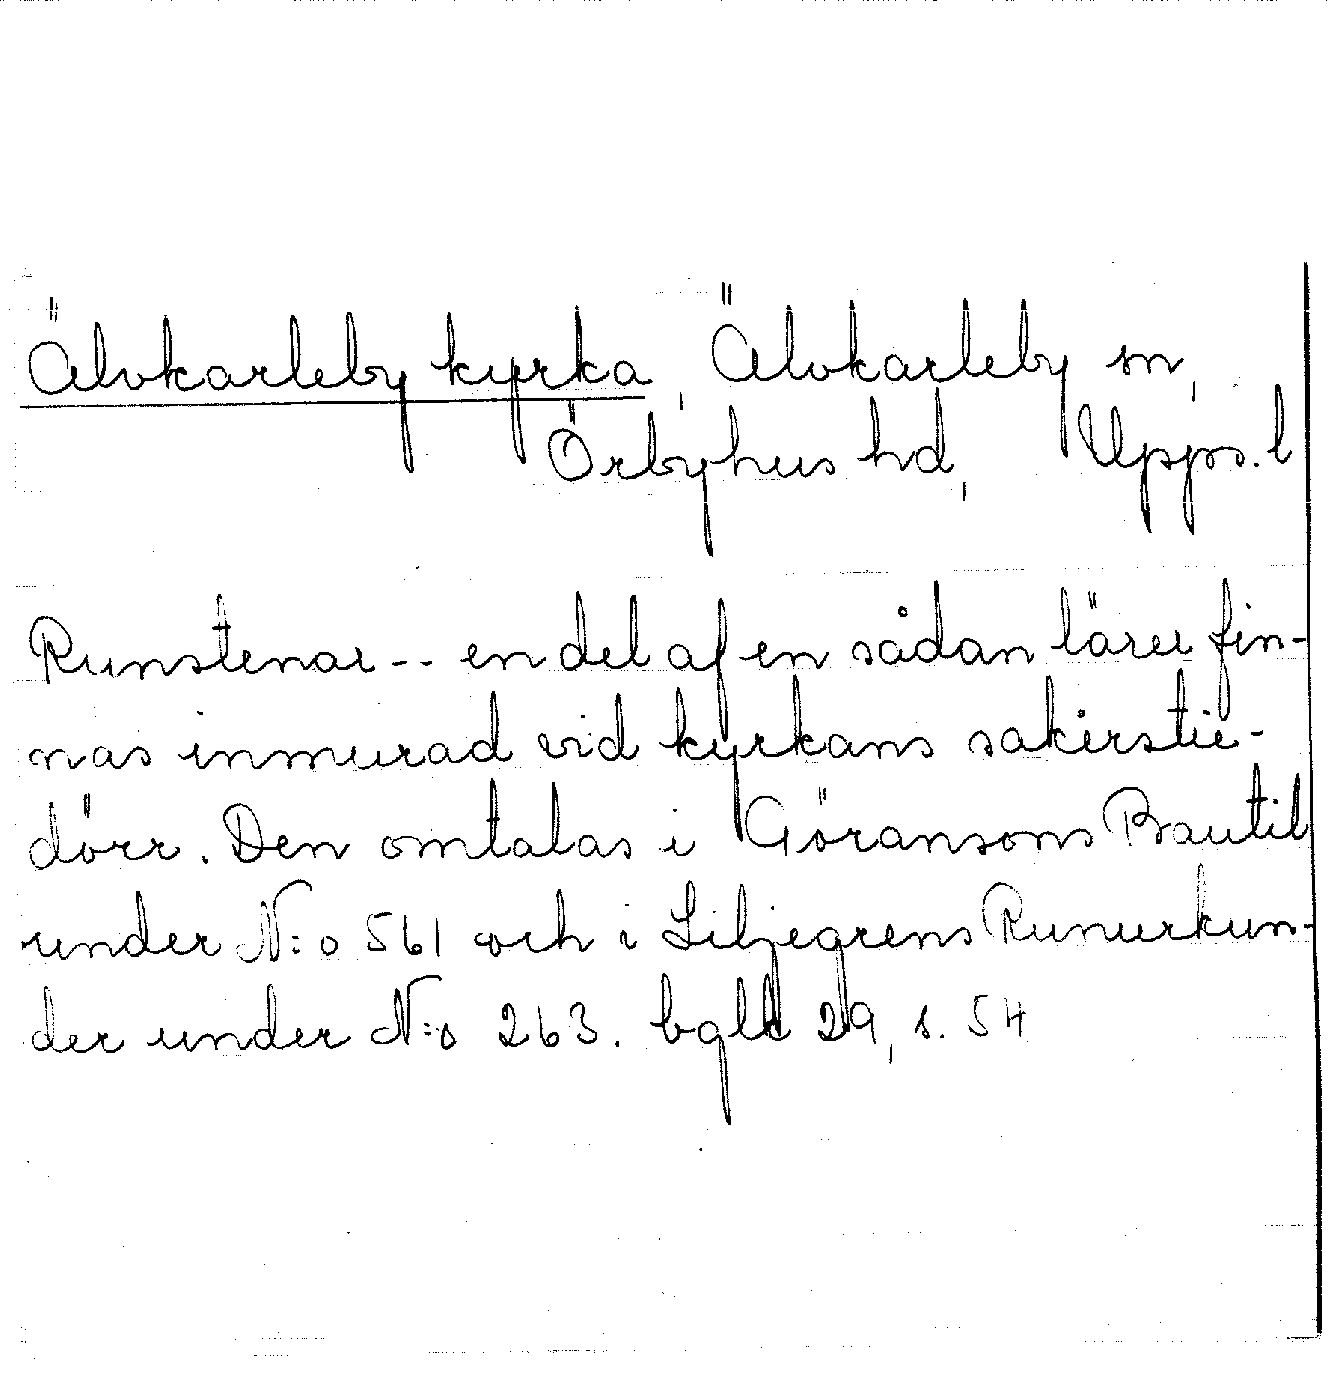 Älvkarleby kyrka, Älvkarleby sn,
Örbyhus hd, Upps. l
Runstenar -- en del af en sådan lärer fin-
nas inmurad vid kyrkans sakerstie-
dörr. Den omtalas i Göransons Bautil
under N:o 561 och i Liljegrens Runurkun-
der under N:o 263. bgld 29, s. 54